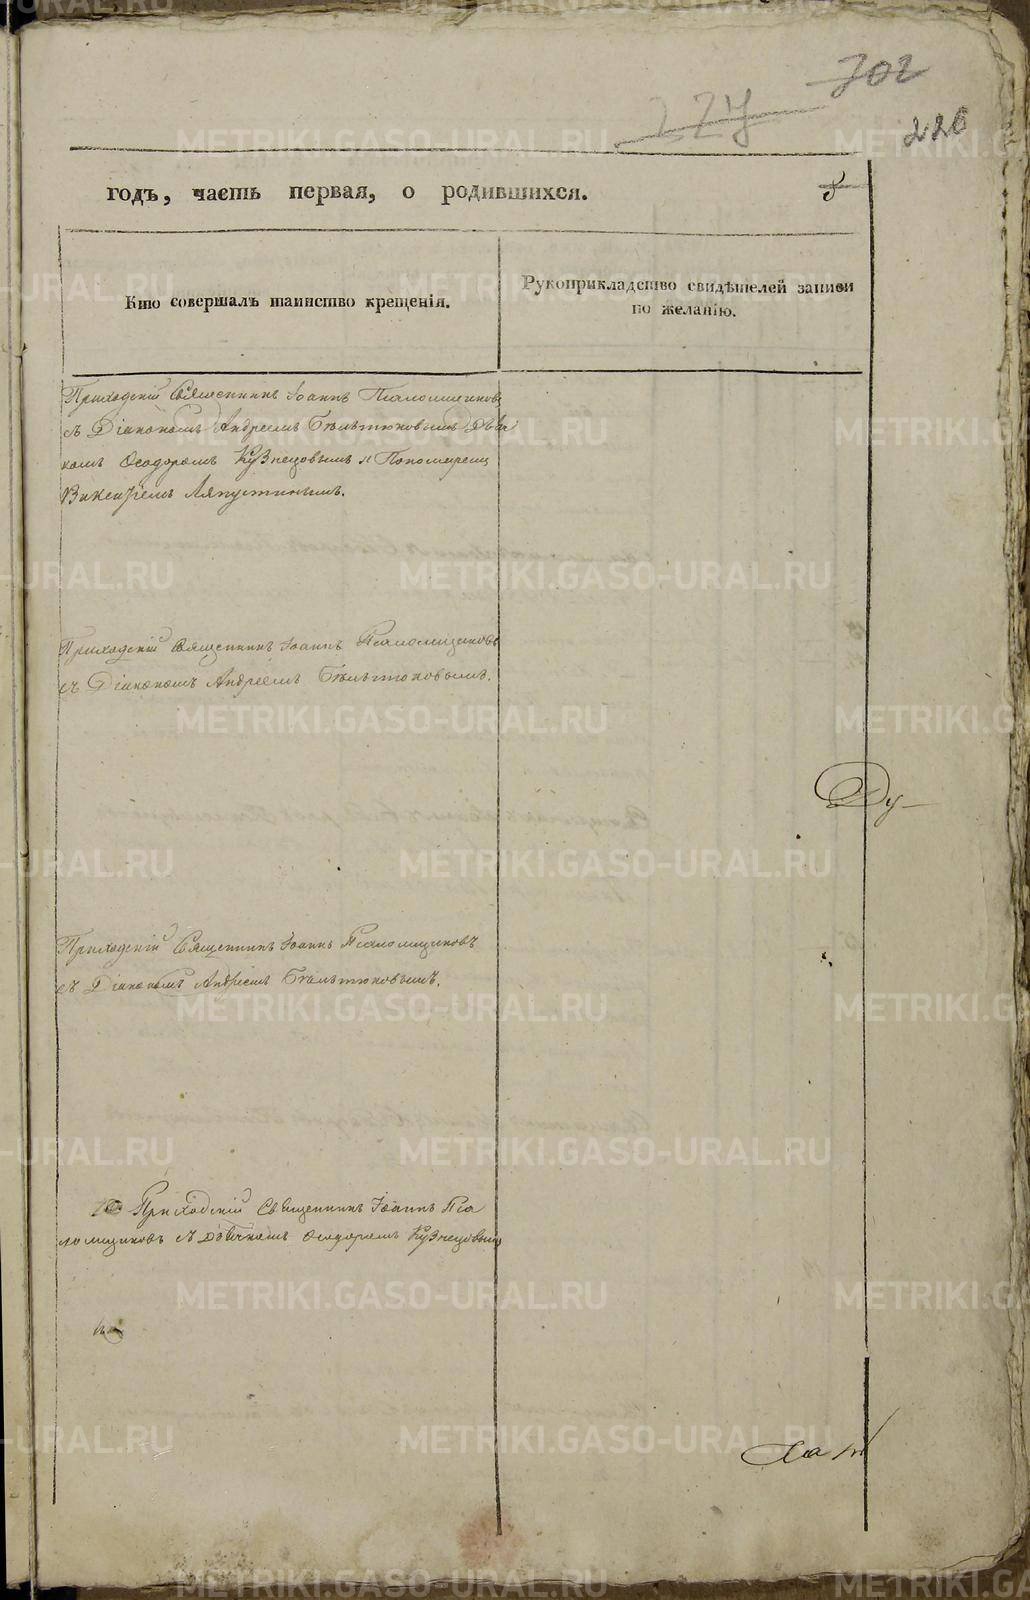 702
226
годъ, часть первая, о родившихся.
5
Кто совершалъ таинство крещенія.
Рукоприкладство свидѣтелей записи
по желанію.
Приходскій Священникъ Іоаннъ Псаломщиковъ
съ Діакономъ Андреемъ Бѣльтюковымъ Дьяч
комъ Ѳеодоромъ Кузнецовымъ и Пономаремъ
Викентіемъ Ляпустинымъ.
Приходскій Священникъ Іоаннъ Псаломщиковъ
съ Діакономъ Андреемъ Бѣльтюковымъ.
Ду-
Приходскій Священникъ Іоаннъ Псаломщиковъ
съ Діакономъ Андреемъ Бѣльтюковымъ.
Приходскій Священникъ Іоаннъ Пса
ломщиковъ съ Дьячкомъ Ѳеодоромъ Кузнецовымъ
METRIKI.GASO-URAL.RU